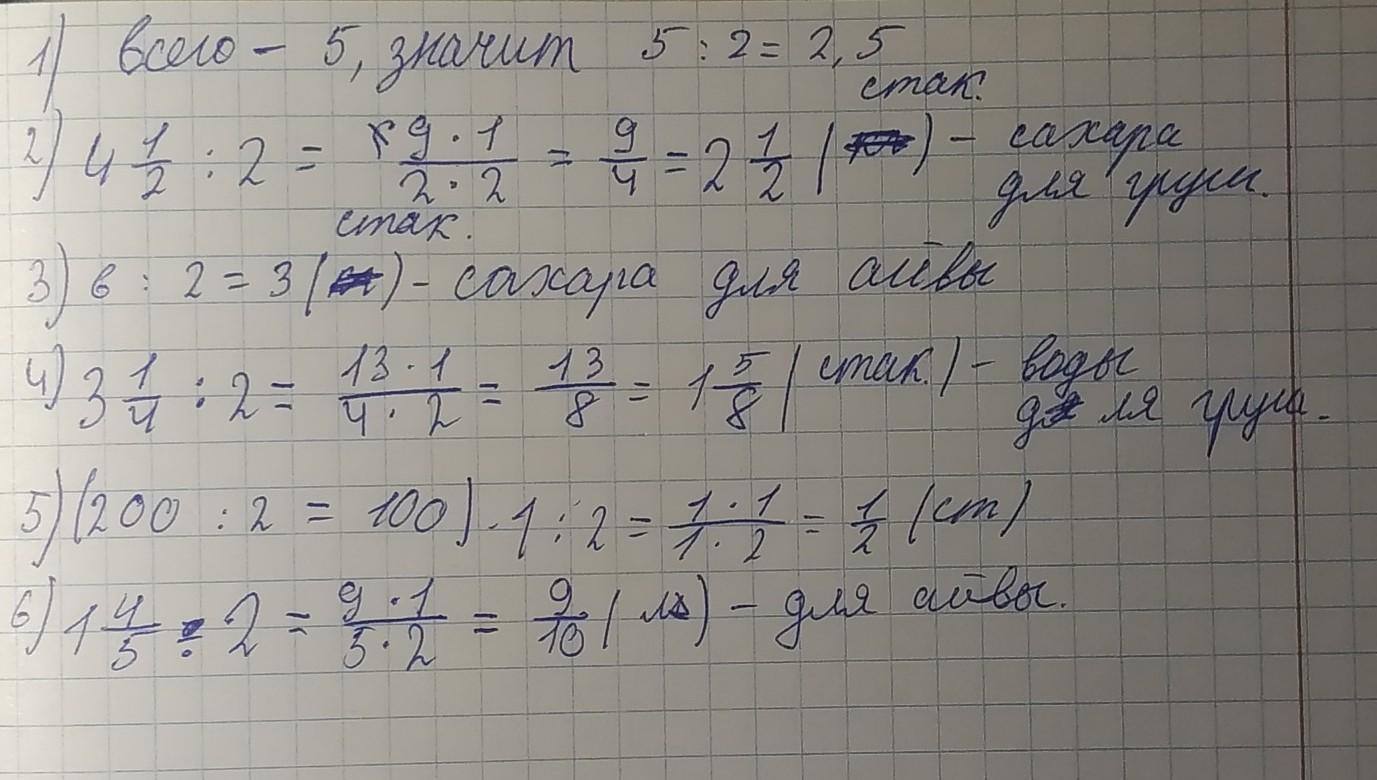 1) всего – 5, значит 5 : 2 = 2,5
стак.
2) 4 1/2 : 2 = 9 · 1 / 2 · 2 = 9/4 = 2 1/2 ( ) – сахара
для груш.
стак.
3) 6 : 2 = 3 ( ) – сахара для айвы
4) 3 1/4 : 2 = 13 · 1 / 4 · 2 = 13/8 = 1 5/8 (стак.) – воды
для груш.
5) (200 : 2 = 100) · 1 : 2 = 1 · 1 / 1 · 2 = 1/2 (ст)
6) 1 4/5 : 2 = 9 · 1 / 5 · 2 = 9/10 (л) – для айвы.